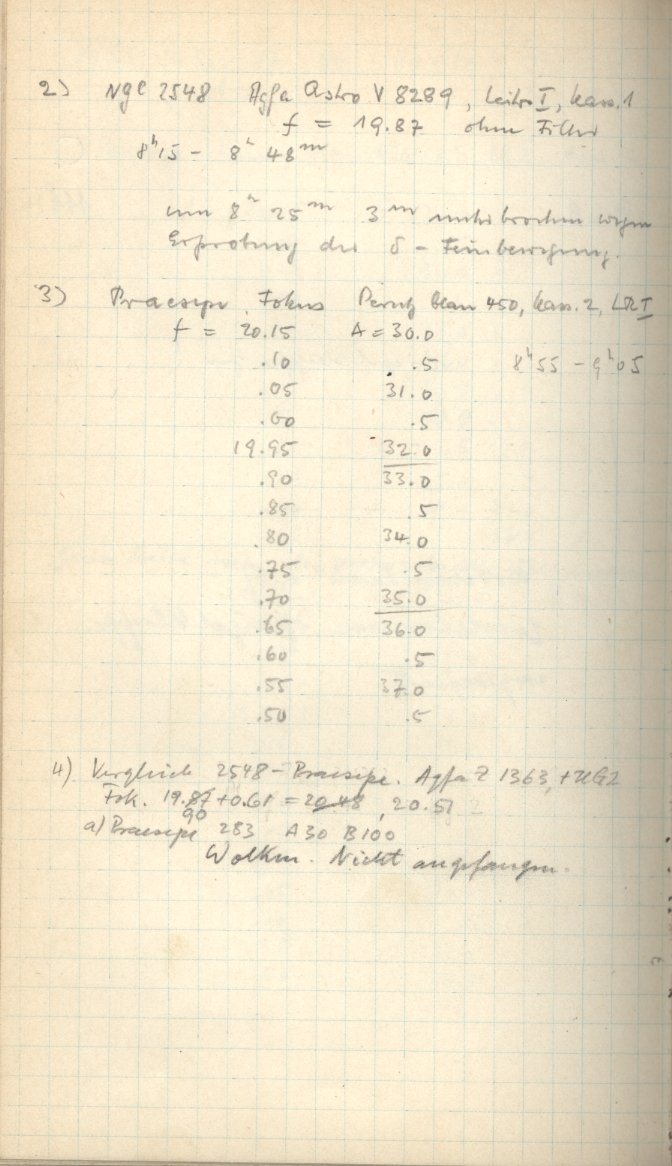 2) NGC 2548 Agfa Astro V 8289, Leitro I, kass. 1
f = 19.87 ohne Filter
8h15 - 8h 48m
um 8h 25m 3m unterbrochen wegen
Erprobung der δ - Feinbewegung.
3) Praesepe Fokus Perutz blau 450, kass. 2, LRI
f = 20.15 A = 30.0
.10 .5 8h55 - 9h05
.05 31.0
.00 .5
19.95 32.0
.90 33.0
.85 .5
.80 34.0
.75 .5
.70 35.0
.65 36.0
.60 .5
.55 37.0
.50 .5
4) Vergleich 2548 - Praesepe. Agfa Z 1363, + UG2
Fok. 19.87 + 0.61 = 20.48, 20.51
90
a) Praesepe 283 A30 B100
Wolken. Nicht angefangen.